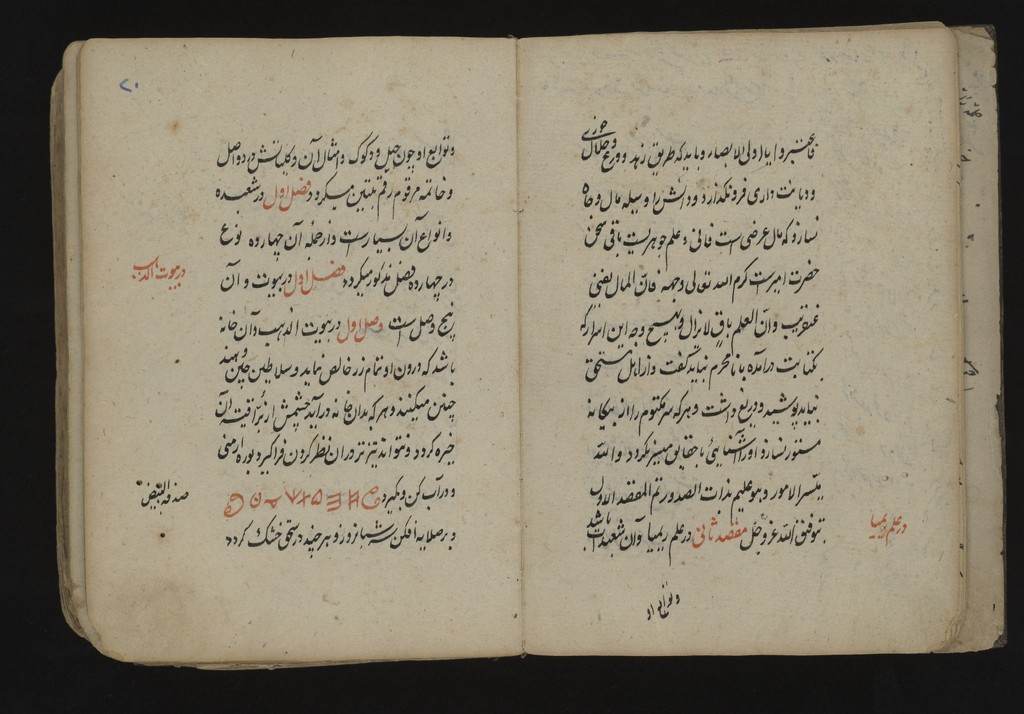 فاعتبروا یا اولی الابصار و باید که طریق زهد و ورع
و دیانت داری فرو نگذارد و دانش را وسیله مال و جاه
نسازد که مال عرضی است فانی و علم جوهریست باقی سخن
حضرت امیرست کرم الله تعالی وجهه فان المال یفنی
عنقریب وان العلم باق لا یزال و بهیچ وجه این اسرار که
بکتابت درآمده با نامحرم نباید گفت و از اهل مستحق
نباید پوشید و دریغ داشت و هر که سر مکتوم را از بیکانه
مستور نسازد او را آشنایی با حقایق میسر نکردد والله
میسر الامور و هو علیم بذات الصدور تم المقصد الاول
بتوفیق الله عز و جل مقصد ثانی در علم ریمیا و آن شعبدات باشد
در علم ریمیا
و توابع او
۲۰
و توابع او چون حیل و دکوک و امثال آن و کلیاتش در دو اصل
و خاتمه مرقوم رقم تبیین میکردد فصل اول در شعبده
و انواع آن بسیارست و از جمله آن چهارده نوع
در چهارده فصل مذکور میکردد فصل اول در بیوت و آن
پنج وصل است وصل اول در بیوت الذهب و آن خانه
باشد که درون او تمام زر خالص نماید و سلاطین چین و هند
چنین میکنند و هر که بدان خانه درآید چشمش از براقیت آن
خیره کردد و نتواند تیز تر دران نظر کردن فراکیرد بوره ارمنی
و در آب کن و بکیرد
و بر صلایه افکن سه شبانروز و هر چند در سحق خشک کردد
در بیوت الذهب
صدفة البیض